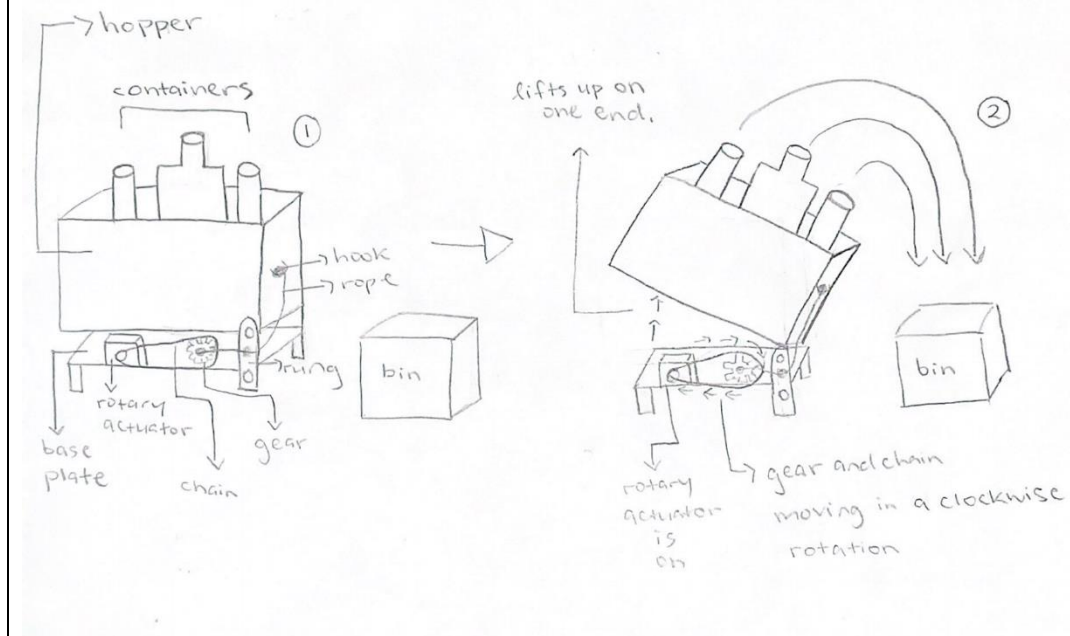 hopper
containers
①
hook
rope
rung
bin
rotary
actuator
gear
base
plate
chain
lifts up on
one end.
②
bin
rotary
actuator
is
on
gear and chain
moving in a clockwise
rotation